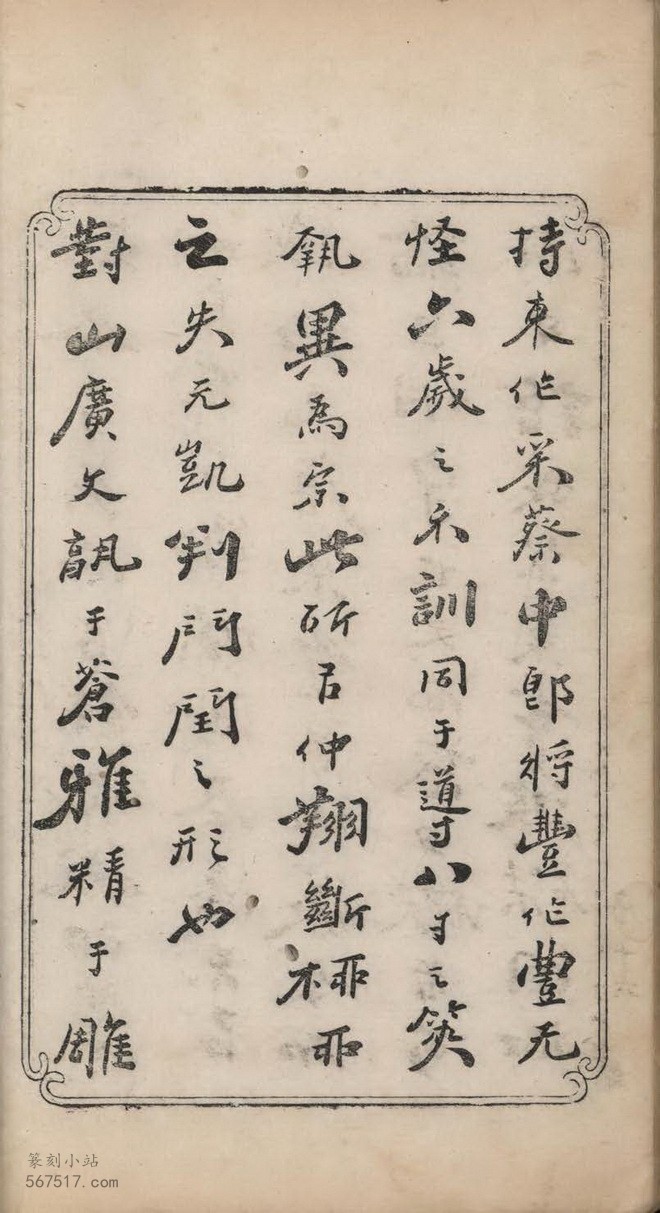 持束作采蔡中郎將豐作豊无
怪六歲之禾訓同于導八寸之筴
執異為宗此所㠯仲翔斷桺丣
之失元凱判鬥閏之形也
對山廣文訊于蒼雅精于雕
篆刻小站
567517.com